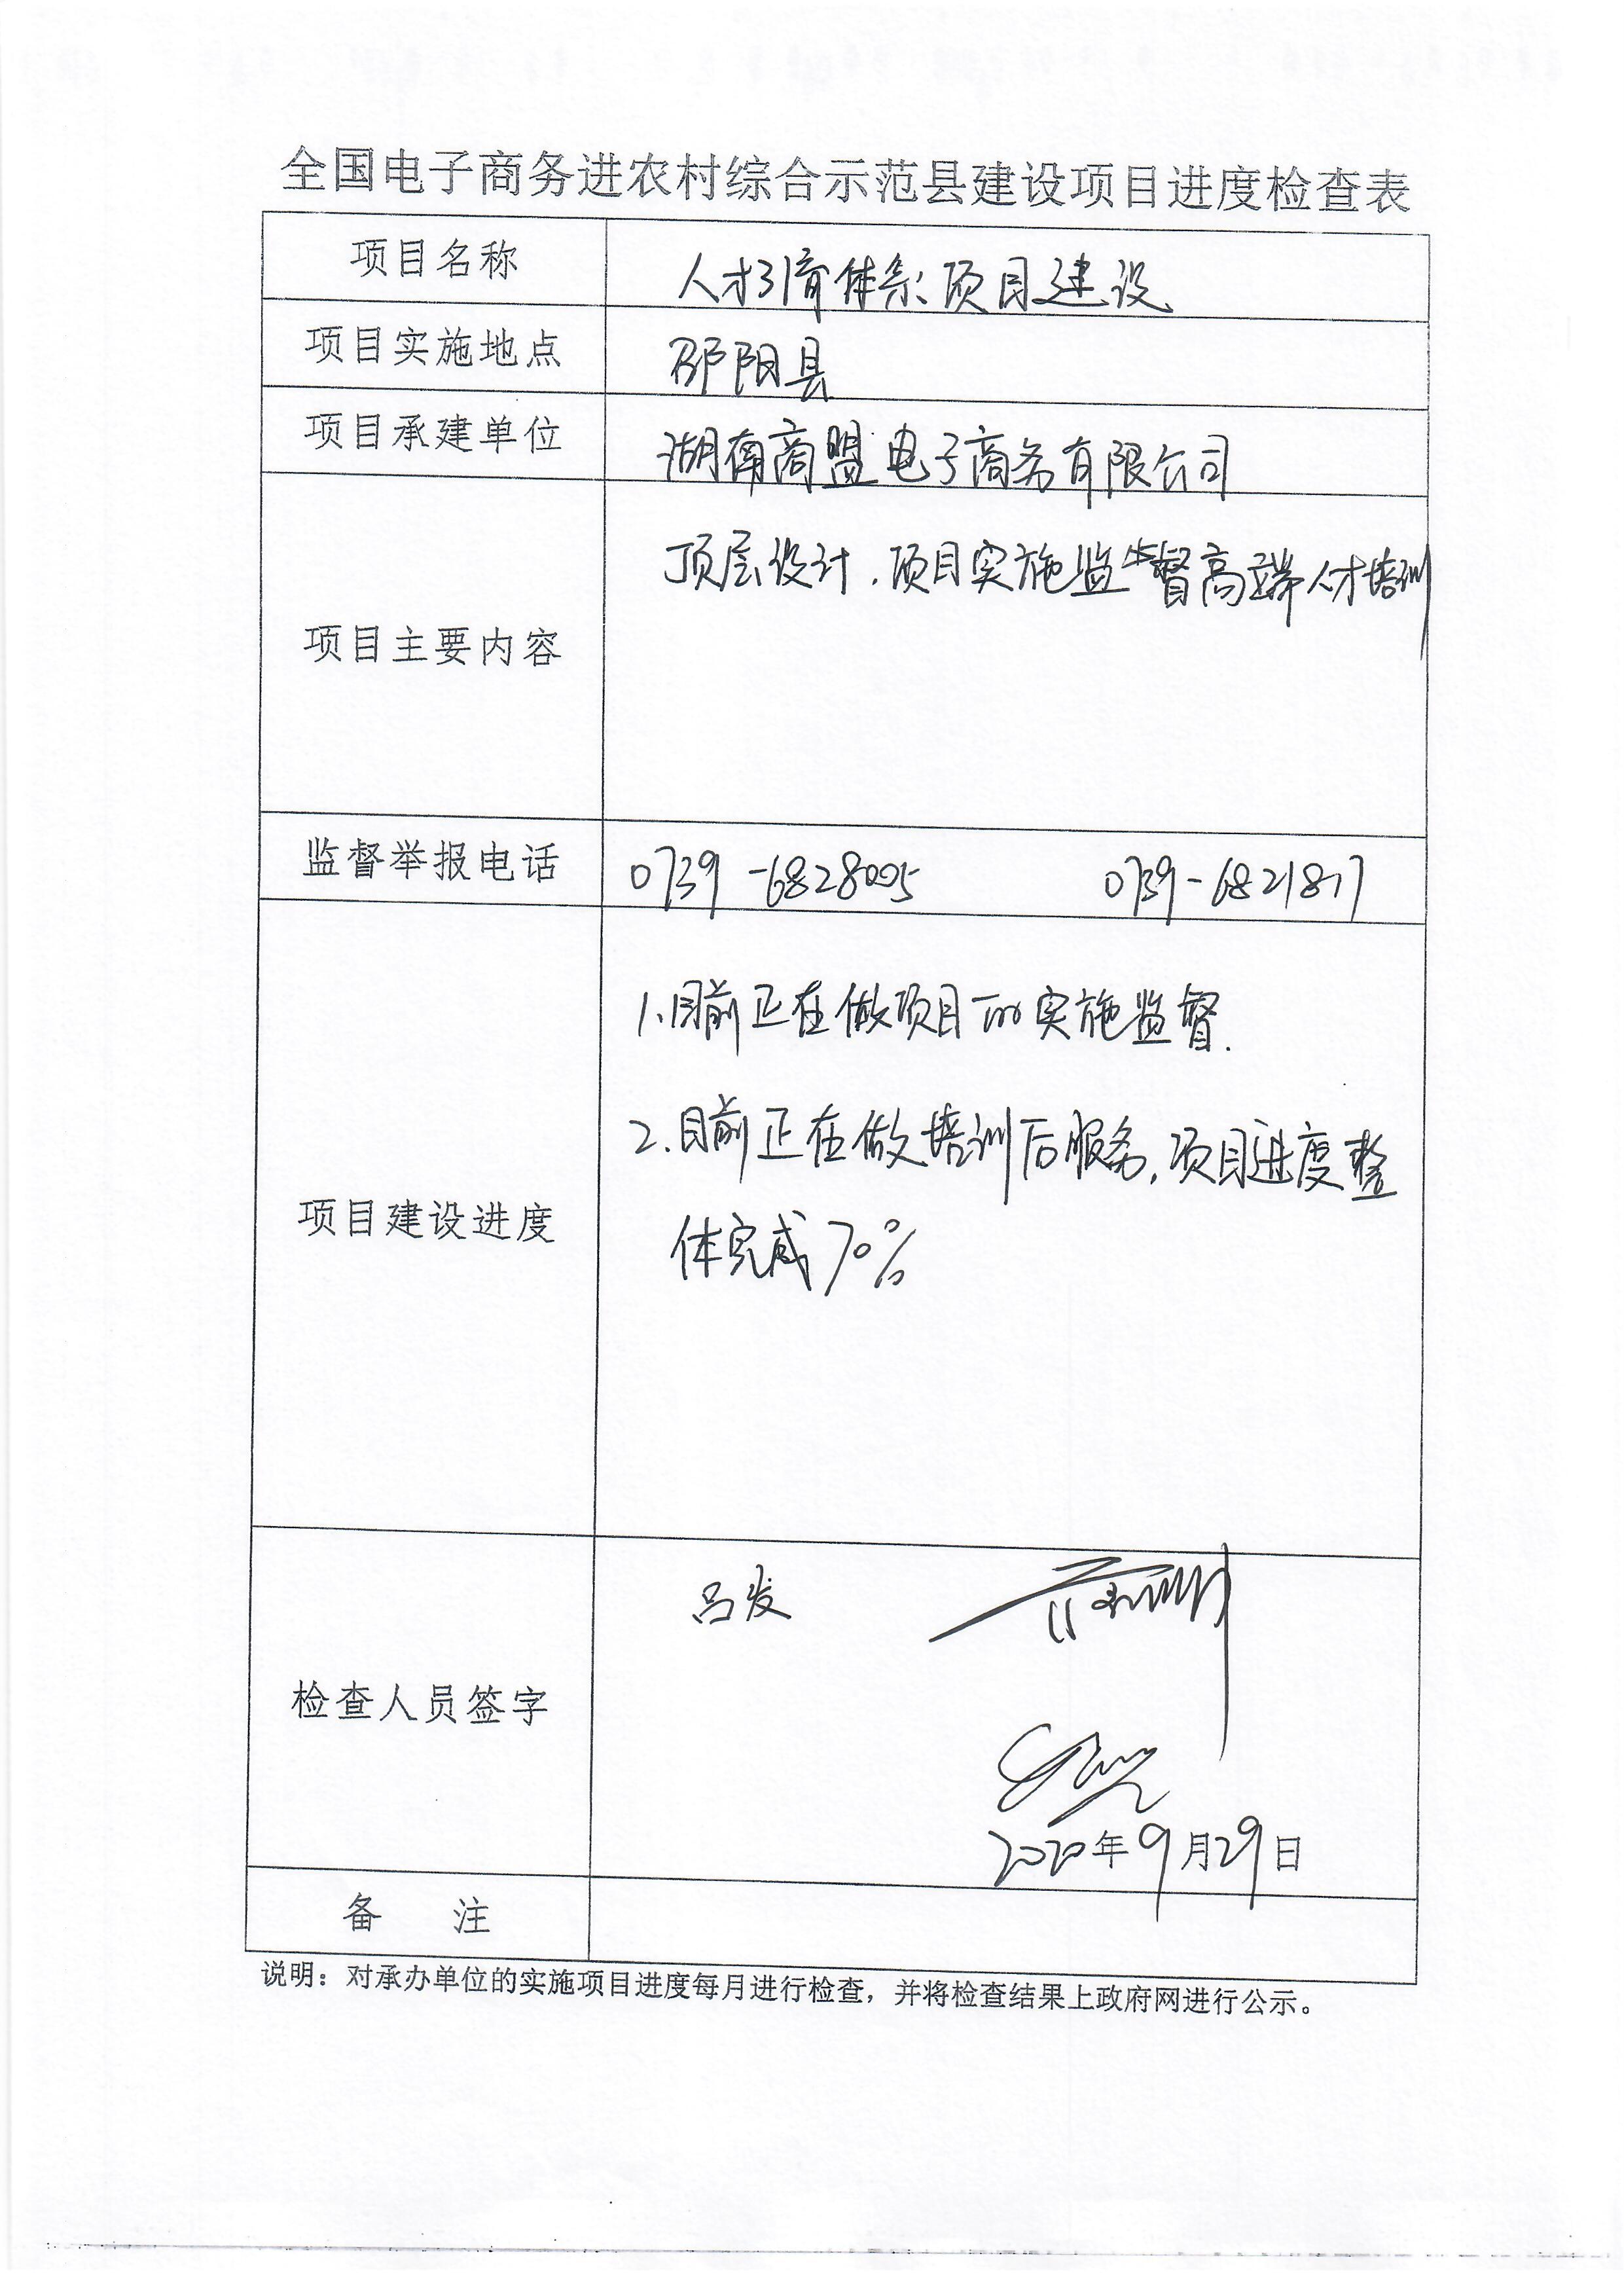 全国电子商务进农村综合示范县建设项目进度检查表
项目名称 人才引育体系项目建设
项目实施地点 邵阳县
项目承建单位 湖南商盟电子商务有限公司
项目主要内容 顶层设计.项目实施监督高端人才培训
监督举报电话 0739-6828005 0739-6821817
1.目前正在做项目的实施监督.
2.目前正在做培训后服务,项目进度整
项目建设进度
体完成70%
吕发
检查人员签字
2020年9月29日
备 注
说明：对承办单位的实施项目进度每月进行检查，并将检查结果上政府网进行公示。